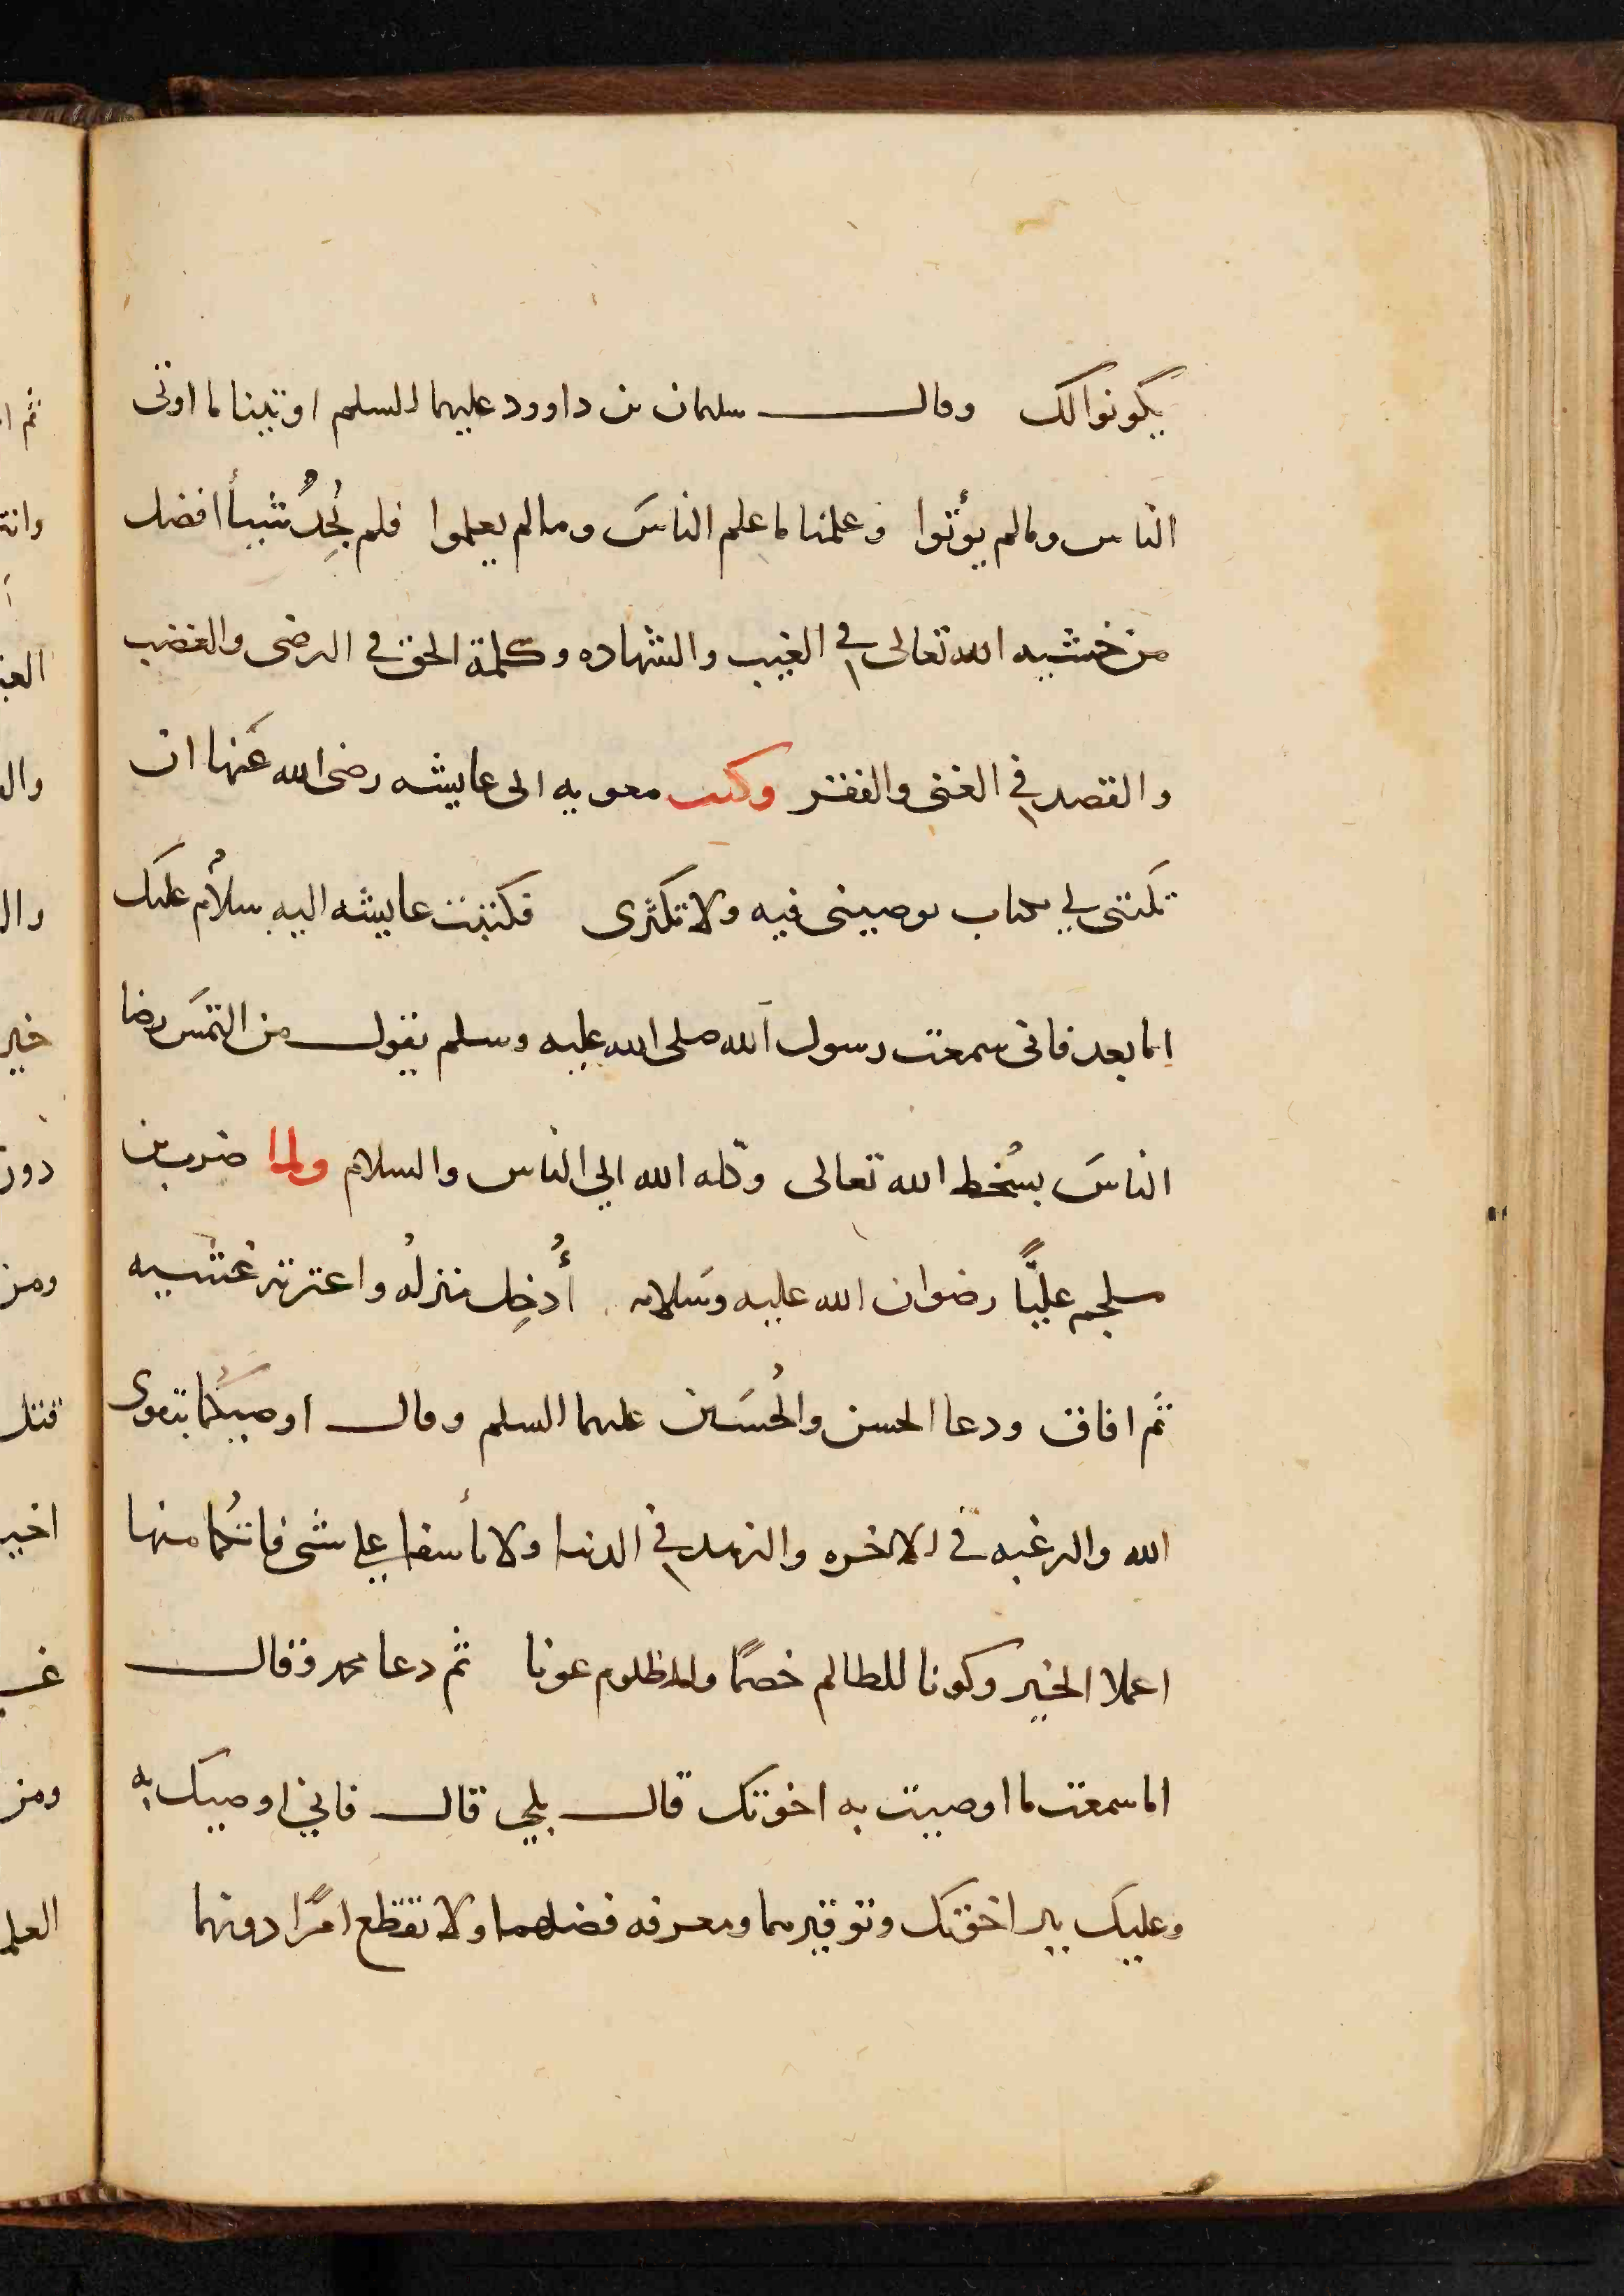 يكونوا لك وقال سليمان بن داوود عليهما السلم اوتينا ما اوتى
الناس وما لم يؤتوا وعلمنا ما علم الناسَ وما لم يعلموا فلم نُجِدُ شيئاً افضل
من خشيه الله تعالى في الغيب والشهاده وكلمة الحق في الرضى والغضب
والقصد في الغنى والفقر وكتب معويه الى عايشه رضى الله عَنها ان
تكتبى لي بكتاب توصينى فيه ولا تكثّرى فكتبت عايشه اليه سلاٌم عليك
اما بعد فانى سمعت رسول الله صلى الله عليه وسلم يقول من التمسَ رضا
الناسَ بسُخط الله تعالى وكله الله الي الناس والسلام ولما ضرب بن
ملجم عليًّا رضوان الله عليه وسَلامه أُدخِل منزلُه واعترته غشيه
ثم افاق ودعا الحسن والحُسَين عليهما السلم وقال اوصيكُما بتقوى
الله والرغبه في الاخره والزهد في الدنيا ولا تأسفا علي شى فاتكُما منها
اعملا الخير وكونا للظالم خصمًا وللمظلوم عونا ثم دعا محمد وقال
اما سمعت ما اوصيت به اخوتك قال بلي قال فاني اوصيك به
وعليك ببر اخوتك وتوقيرهما ومعرفه فضلهما ولا تقطع امرًا دونهما